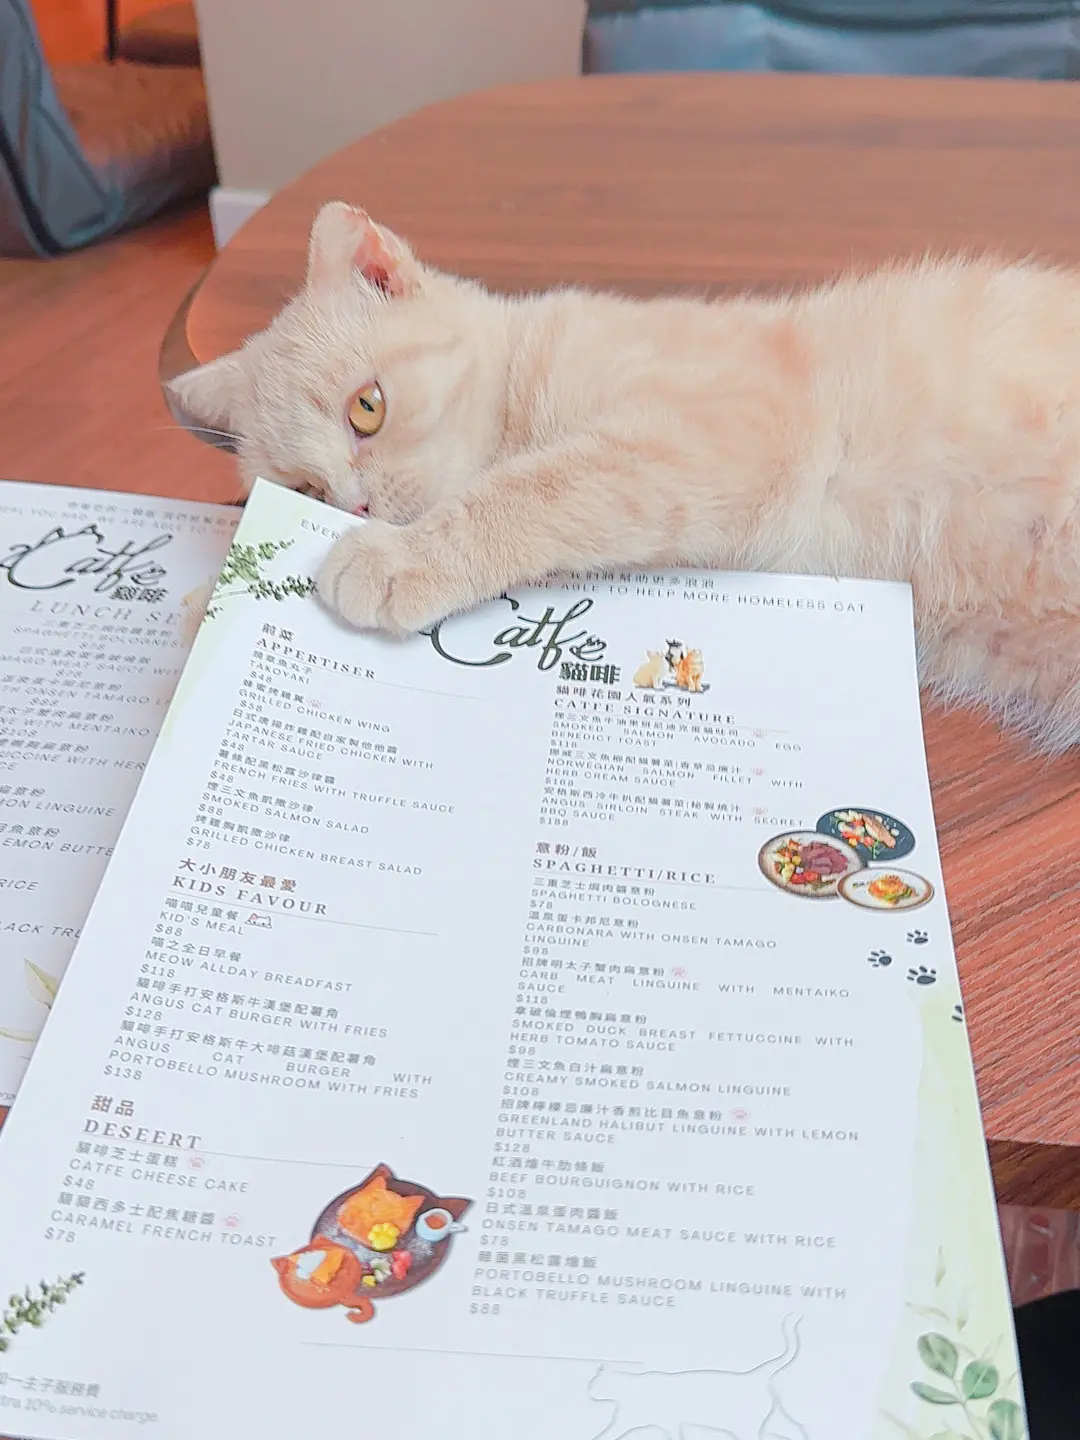 LUNCH SE
SPAGHETTI BOLOGNES
$78
MAGO MEAT SAUCE WIT
$78
TH ONSEN TAMAGO
$88
NE WITH MENTAIKO
$108
UCCINE WITH HER
CE
MON LINGUINE
EMON BUTTE
RICE
ACK TRU
EVER
我們將幫助更多浪浪
ARE ABLE TO HELP MORE HOMELESS CAT
Catfe
貓啡
前菜
APPERTISER
燒章魚丸子
TAKOYAKI
$58
蜂蜜烤雞翼
GRILLED CHICKEN WING
$58
日式唐揚炸雞配自家製他他醬
JAPANESE FRIED CHICKEN WITH
TARTAR SAUCE
$48
薯條配黑松露沙律醬
FRENCH FRIES WITH TRUFFLE SAUCE
$48
煙三文魚凱撒沙律
SMOKED SALMON SALAD
$88
烤雞胸凱撒沙律
GRILLED CHICKEN BREAST SALAD
$78
大小朋友最愛
KIDS FAVOUR
喵喵兒童餐
KID'S MEAL
$88
喵之全日早餐
MEOW ALLDAY BREADFAST
$118
貓啡手打安格斯牛漢堡配薯角
ANGUS CAT BURGER WITH FRIES
$128
貓啡手打安格斯牛大啡菇漢堡配薯角
ANGUS CAT BURGER WITH
PORTOBELLO MUSHROOM WITH FRIES
$138
甜品
DESEERT
貓啡芝士蛋糕
CATFE CHEESE CAKE
$48
貓貓西多士配焦糖醬
CARAMEL FRENCH TOAST
$78
加一主子服務費
tra 10% service charge
貓啡花園人氣系列
CATFE SIGNATURE
煙三文魚牛油果班尼迪克蛋貓吐司
SMOKED SALMON AVOCADO EGG
BENEDICT TOAST
$118
挪威三文魚柳配貓薯菜|香草忌廉汁
NORWEGIAN SALMON FILLET WITH
HERB CREAM SAUCE
$168
安格斯西冷牛扒配貓薯菜|秘製燒汁
ANGUS SIRLOIN STEAK WITH SECRET
BBQ SAUCE
$188
意粉/飯
SPAGHETTI/RICE
三重芝士焗肉醬意粉
SPAGHETTI BOLOGNESE
$78
溫泉蛋卡邦尼意粉
CARBONARA WITH ONSEN TAMAGO
LINGUINE
$98
招牌明太子蟹肉扁意粉
CARB MEAT LINGUINE WITH MENTAIKO
SAUCE
$118
拿破倫煙鴨胸扁意粉
SMOKED DUCK BREAST FETTUCCINE WITH
HERB TOMATO SAUCE
$98
煙三文魚白汁扁意粉
CREAMY SMOKED SALMON LINGUINE
$108
招牌檸檬忌廉汁香煎比目魚意粉
GREENLAND HALIBUT LINGUINE WITH LEMON
BUTTER SAUCE
$128
紅酒燴牛肋條飯
BEEF BOURGUIGNON WITH RICE
$108
日式溫泉蛋肉醬飯
ONSEN TAMAGO MEAT SAUCE WITH RICE
$78
雜菌黑松露燴飯
PORTOBELLO MUSHROOM LINGUINE WITH
BLACK TRUFFLE SAUCE
$88